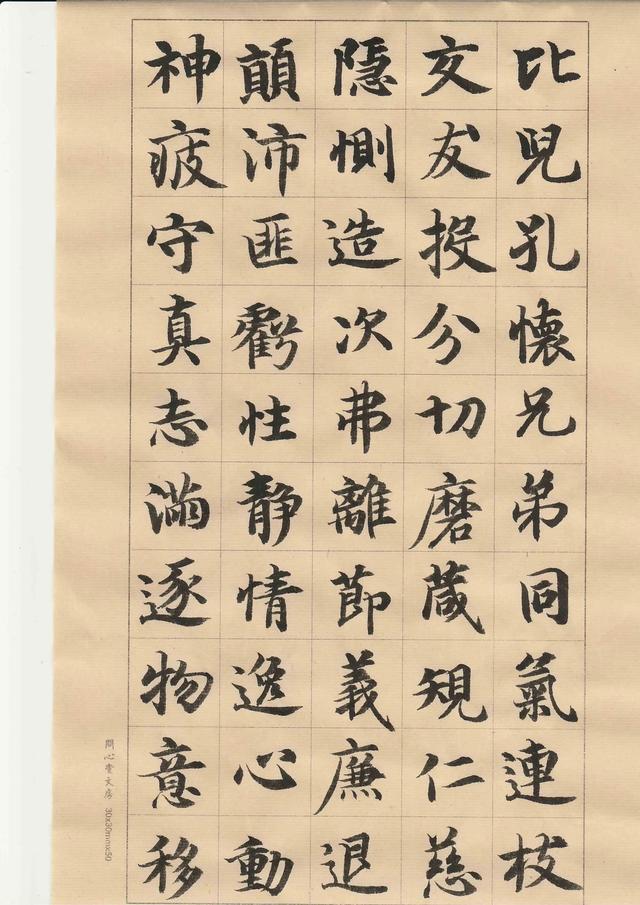 比兒孔懷兄弟同氣連枝
交友投分切磨葴規仁慈
隱惻造次弗離節義廉退
顛沛匪虧性静情逸心動
神疲守真志滿逐物意移
問心堂文房 30x30mmx50